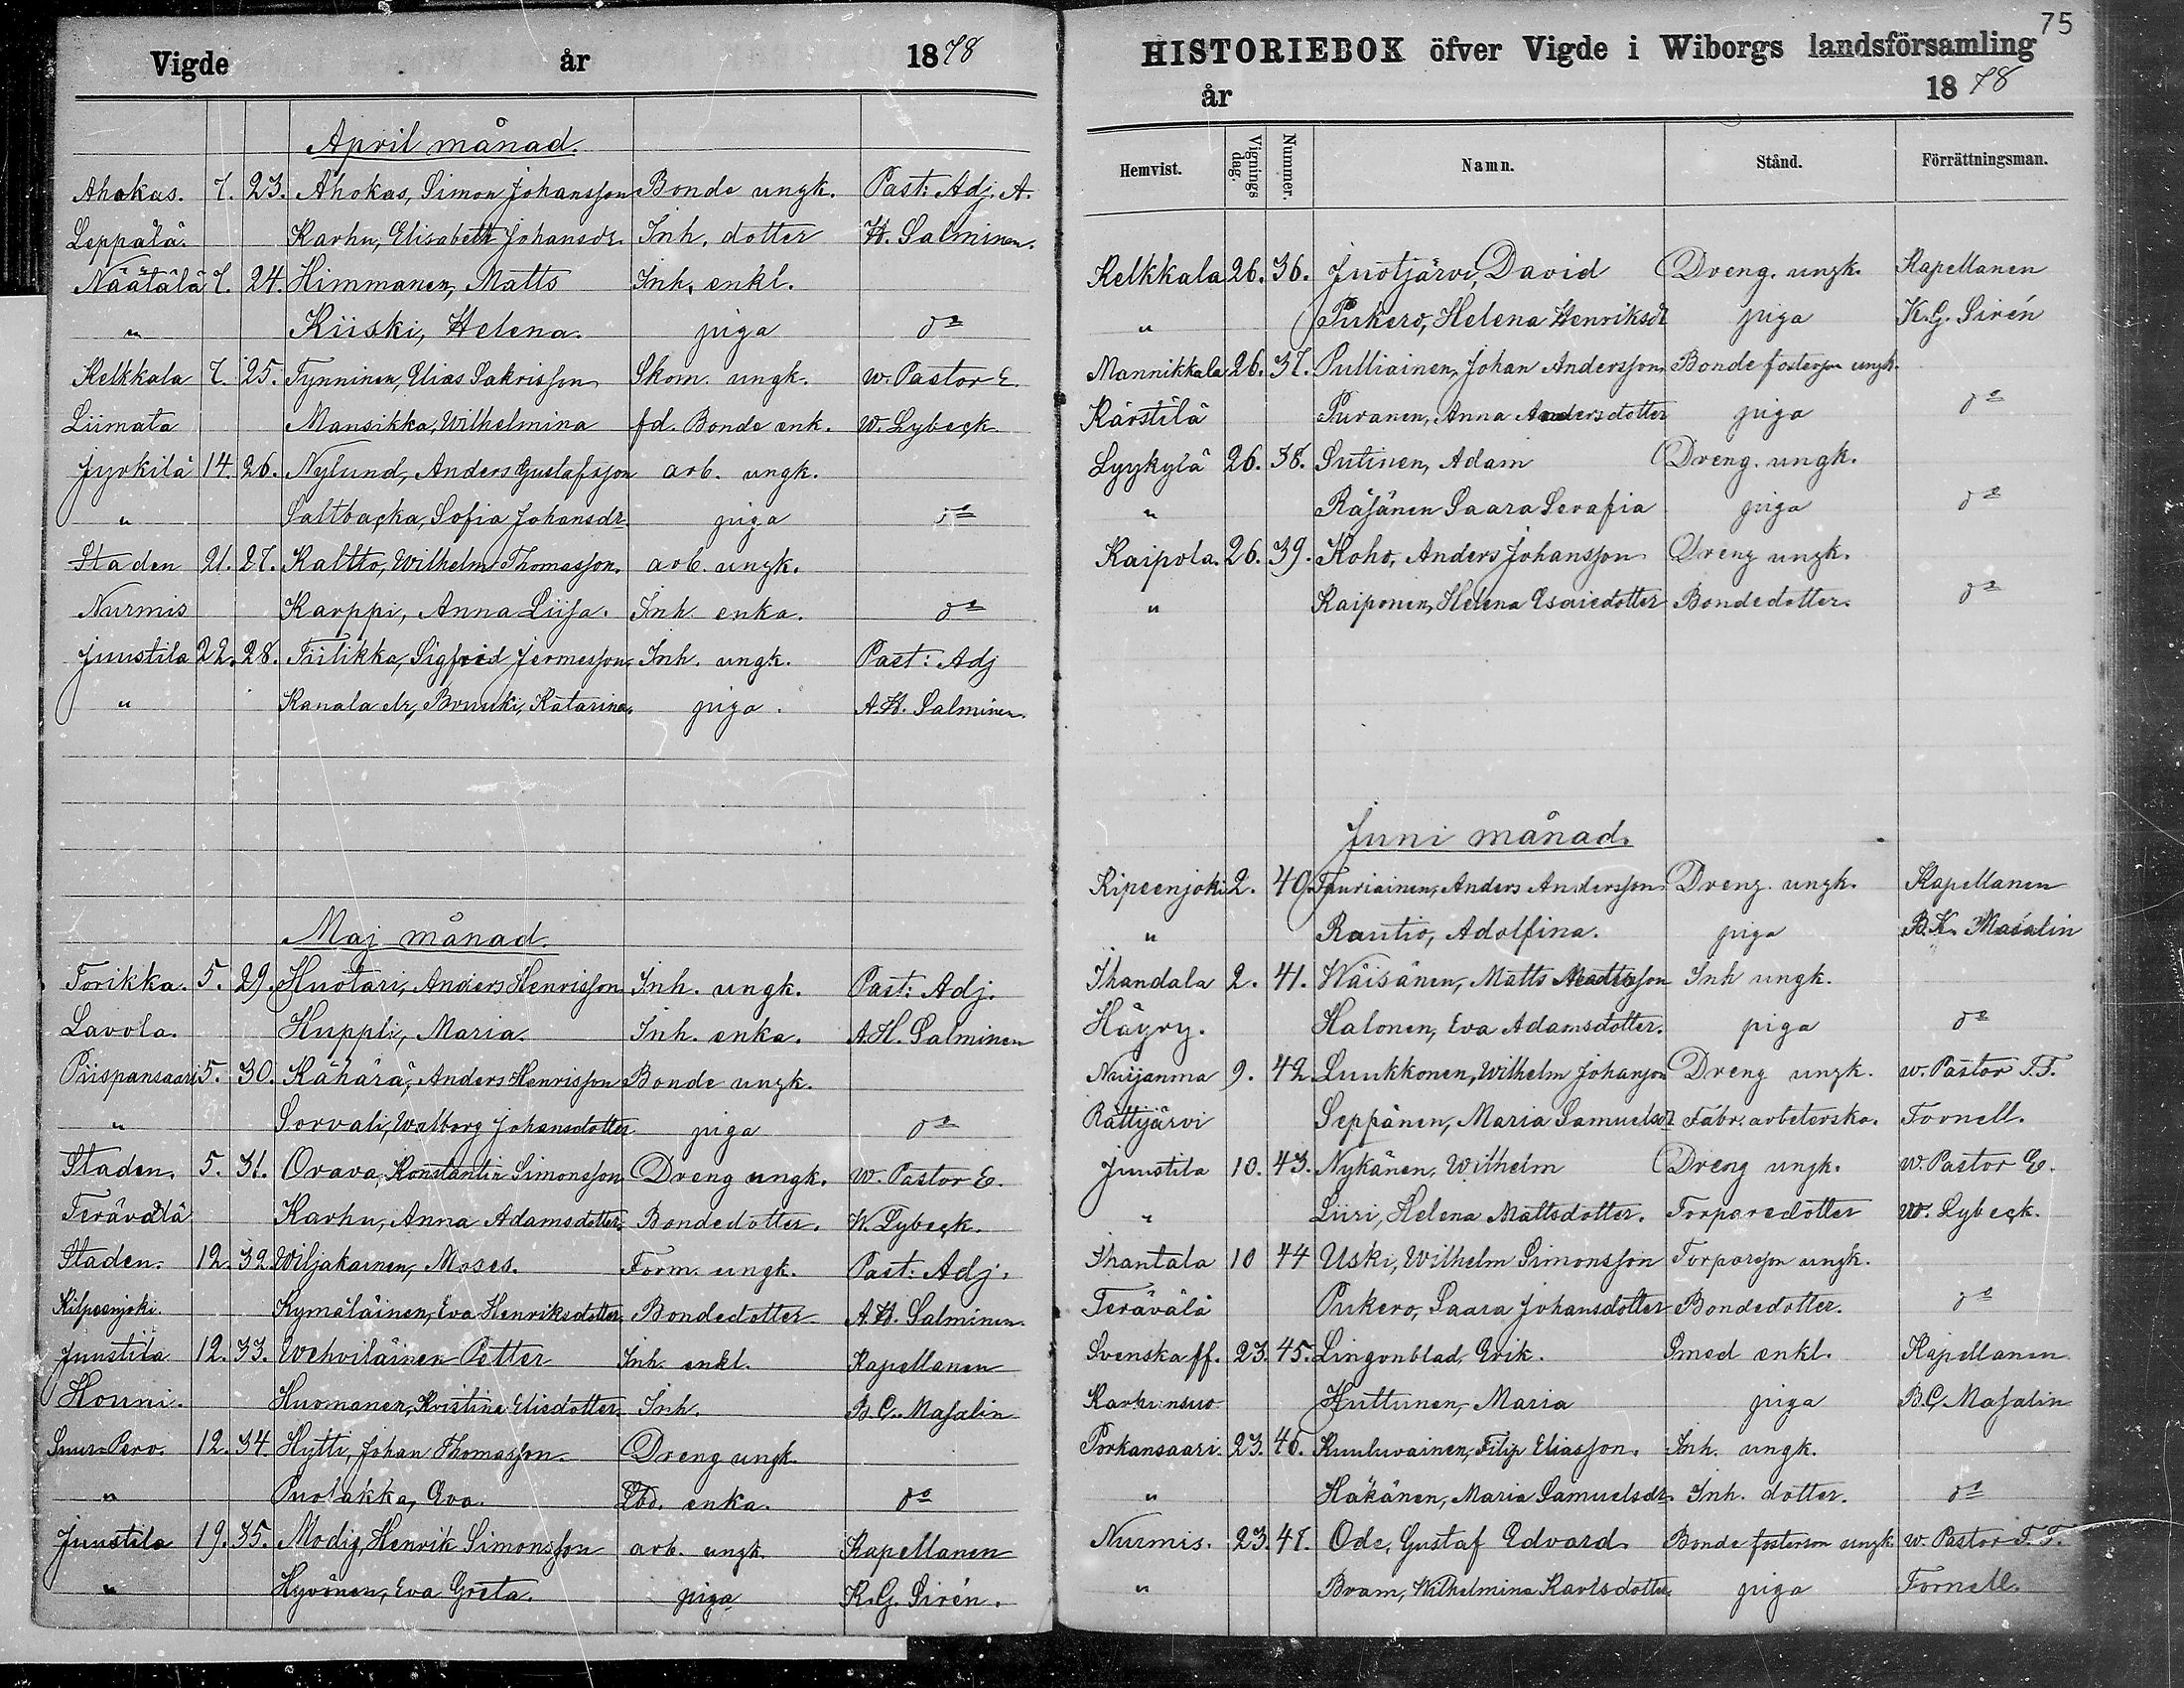 Vigde år 1878
April månad.
Ahokas. 7. 23. Ahokas, Simon Johansson Bonde ungk. Past: Adj. A.
Leppälä. Karhu, Elisabeth Johansdr. Inh. dotter H. Salminen.
Näätälä 7. 24. Himmanen, Matts Inh. enkl.
" Kiiski, Helena. piga do
Kelkkala 7. 25. Tynninen, Elias Sakrisson Skom. ungk. w. Pastor E.
Liimata Mansikka, Wilhelmina fd. Bonde enk. W. Lybeck
Jyrkilä 14. 26. Nylund, Anders Gustafsson arb. ungk.
" Saltbacka, Sofia Johansdr piga do
Staden 21. 27. Kaltto, Wilhelm Thomasson. arb. ungk.
Nurmis Karppi, Anna Liisa. Inh. enka. do
Juustila 22. 28. Tiilikka, Sigfrid Jeremesson Inh. ungk. Past: Adj
" Kanala elr, Katarina. piga. A.H. Salminen.
Maj månad.
Torikka. 5. 29. Huotari, Anders Henrisson Inh. ungk. Past: Adj.
Lavola. Huppli, Maria. Inh. enka. A.H. Salminen
Piispansaari 5. 30. Kähärä, Anders Henrisson Bonde ungk.
" Sorvali, Walborg Johansdotter piga do
Staden. 5. 31. Orava, Konstantin Simonsson Dreng ungk. W. Pastor E.
Terävälä Karhu, Anna Adamsdotter Bondedotter. W. Lybeck.
Staden. 12. 32. Wiljakainen, Moses. Form. ungk. Past: Adj.
Kilpeenjoki. Kymäläinen, Eva Henriksdotter Bondedotter A.H. Salminen.
Juustila 12. 33. Wehviläinen Petter Inh. enkl. Kapellanen
Honni. Huomanen, Kristina Elisdotter Inh. B.C. Masalin
Suur-Pero. 12. 34. Hytti, Johan Thomasson. Dreng ungk.
" Puolakka, Eva. enka. do
Juustila 19. 35. Modig, Henrik Simonsson arb. ungk. Kapellanen
" Hyvönen, Eva Greta. piga K.G. Sirén.
75
HISTORIEBOK öfver Vigde i Wiborgs landsförsamling
år 1878
Hemvist. Vignings dag. Nummer. Namn. Stånd. Förrättningsman.
Kelkkala 26. 36. Juotjärvi, David Dreng. ungk. Kapellanen
" Pukero, Helena Henriksdr piga K.G. Sirén
Mannikkala 26. 37. Pulliainen, Johan Andersson Bonde fosterson ungk.
Kärstilä Puranen, Anna Andersdotter piga do
Lyykylä 26. 38. Sutinen, Adam Dreng. ungk.
" Räsänen Saara Serafia piga do
Kaipola. 26. 39. Koho, Anders Johansson Dreng ungk.
" Kaiponen, Helena Esaiedotter Bondedotter. do
Juni månad.
Kipeenjoki 2. 40. Tauriainen, Anders Andersson Dreng. ungk. Kapellanen
" Rautio, Adolfina. piga B.K. Masalin
Ihandala 2. 41. Wäisänen, Matts Mattsson Inh ungk.
Häyry. Halonen, Eva Adamsdotter. piga do
Nuijanma 9. 42. Luukkonen, Wilhelm Johansson Dreng ungk. w. Pastor T.T.
Rättijärvi Seppänen, Maria Samuelsdr Fabr. arbeterska. Fornell.
Juustila 10. 43. Nykänen, Wilhelm Dreng ungk. W. Pastor E.
" Liiri, Helena Mattsdotter. Torparedotter W. Lybeck.
Ihantala 10 44 Uski, Wilhelm Simonsson Torparson ungk.
Terävälä Pukero, Saara Johansdotter Bondedotter. do
Svenska ff. 23. 45. Lingonblad, Erik. Smed enkl. Kapellanen
Karhunsuo Huttunen, Maria piga B.C. Masalin
Porkansaari. 23. 46. Kuuluvainen, Filip Eliasson. Inh. ungk.
" Häkänen, Maria Samuelsdr. Inh. dotter. do
Nurmis. 23. 47. Ode, Gustaf Edvard Bonde fosterson ungk. w. Pastor T.T.
" Bram, Wilhelmina Karlsdotter piga Fornell.